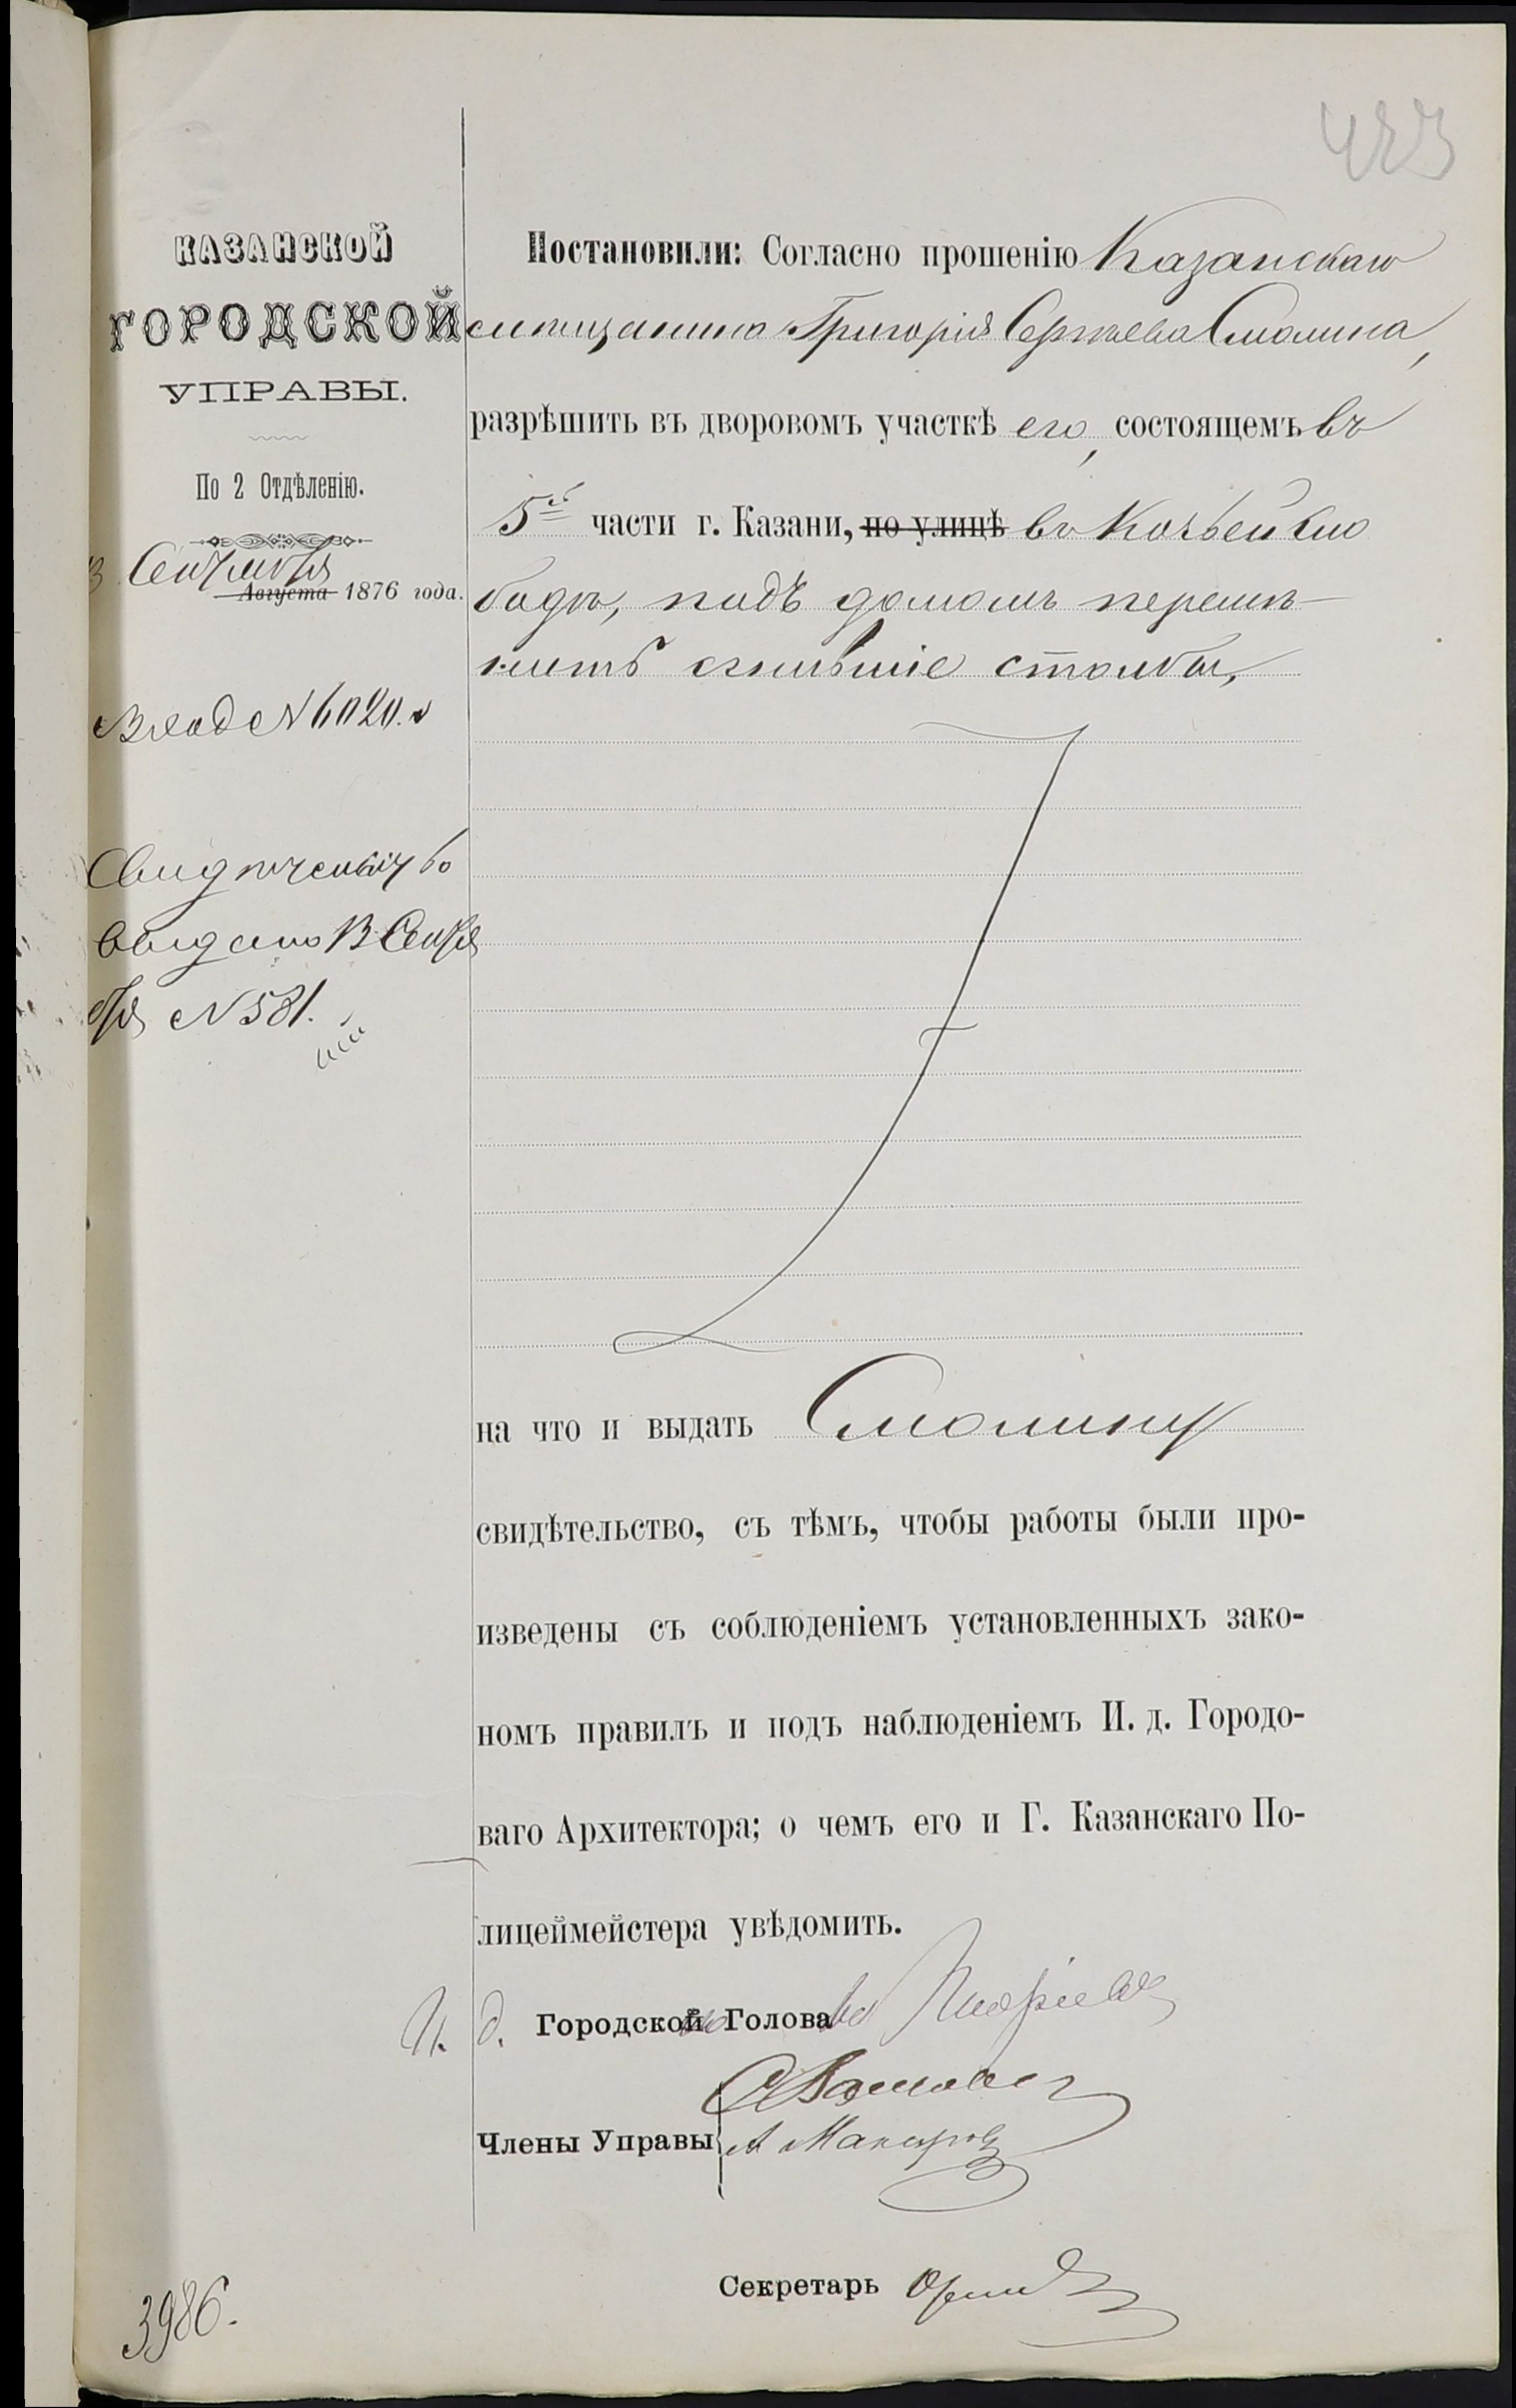 423
КАЗАНСКОЙ
ГОРОДСКОЙ
УПРАВЫ.
По 2 Отдѣленію.
13 Сентября
Августа 1876 года.
Вход № 6020.
Свидѣтельство
выдано 13 Сентя
бря № 581.
Постановили: Согласно прошенію Казанскаго
мѣщанина Григорія Сергѣева Смолина,
разрѣшить въ дворовомъ участкѣ его, состоящемъ въ
5й части г. Казани, по улицѣ въ Козьей Сло
бодѣ, подъ домомъ перемѣ-
нить сгнившіе столбы,
на что и выдать Смолину
свидѣтельство, съ тѣмъ, чтобы работы были про-
изведены съ соблюденіемъ установленныхъ зако-
номъ правилъ и подъ наблюденіемъ И. д. Городо-
ваго Архитектора; о чемъ его и Г. Казанскаго По-
лицеймейстера увѣдомить.
И. д. Городской Голова
Члены Управы А Макаровъ
Секретарь
3986.